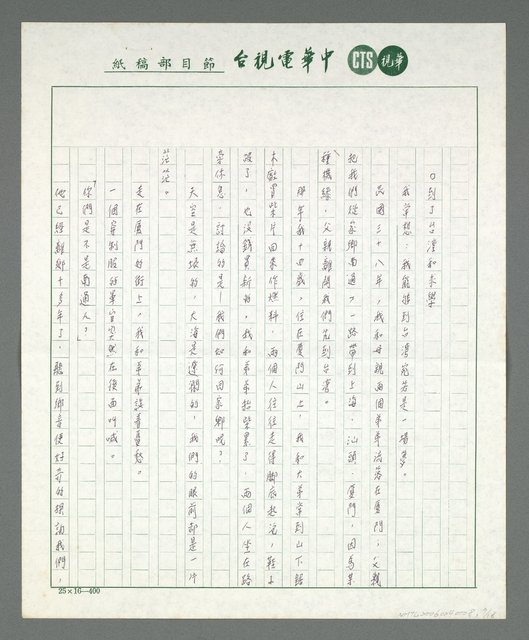 中華電視台 節目部稿紙
CTS 華視
○到了台灣和未婚
我常想,我能誰到台灣前若是一場夢。
民國三十八年,我和母親兩個弟弟流落在廈門,父親
把我們從家鄉南通,一路帶到上海、汕頭、廈門,因為某
種機緣,父親離開我們先到台灣。
那年我十四歲,住在廈門山上,我和大弟常到山下話
木
買柴片回來作燃料。兩個人往往走得腳底起泡,鞋子
破了,也沒錢買新的,我和弟弟抬柴累了,兩個人坐在路
旁休息,討論的是—我們如何回家鄉呢?
天空是無垠的,大海是遼闊的,我們的眼前卻是一片
茫茫。
走在廈門的街上,我和弟弟談著着愁。
一個穿制服的軍官突然在後面叫喊。
「你們是不是南通人?」
他已經離鄉十多年了,聽到鄉音便好奇的探詢我們,
25×16—400